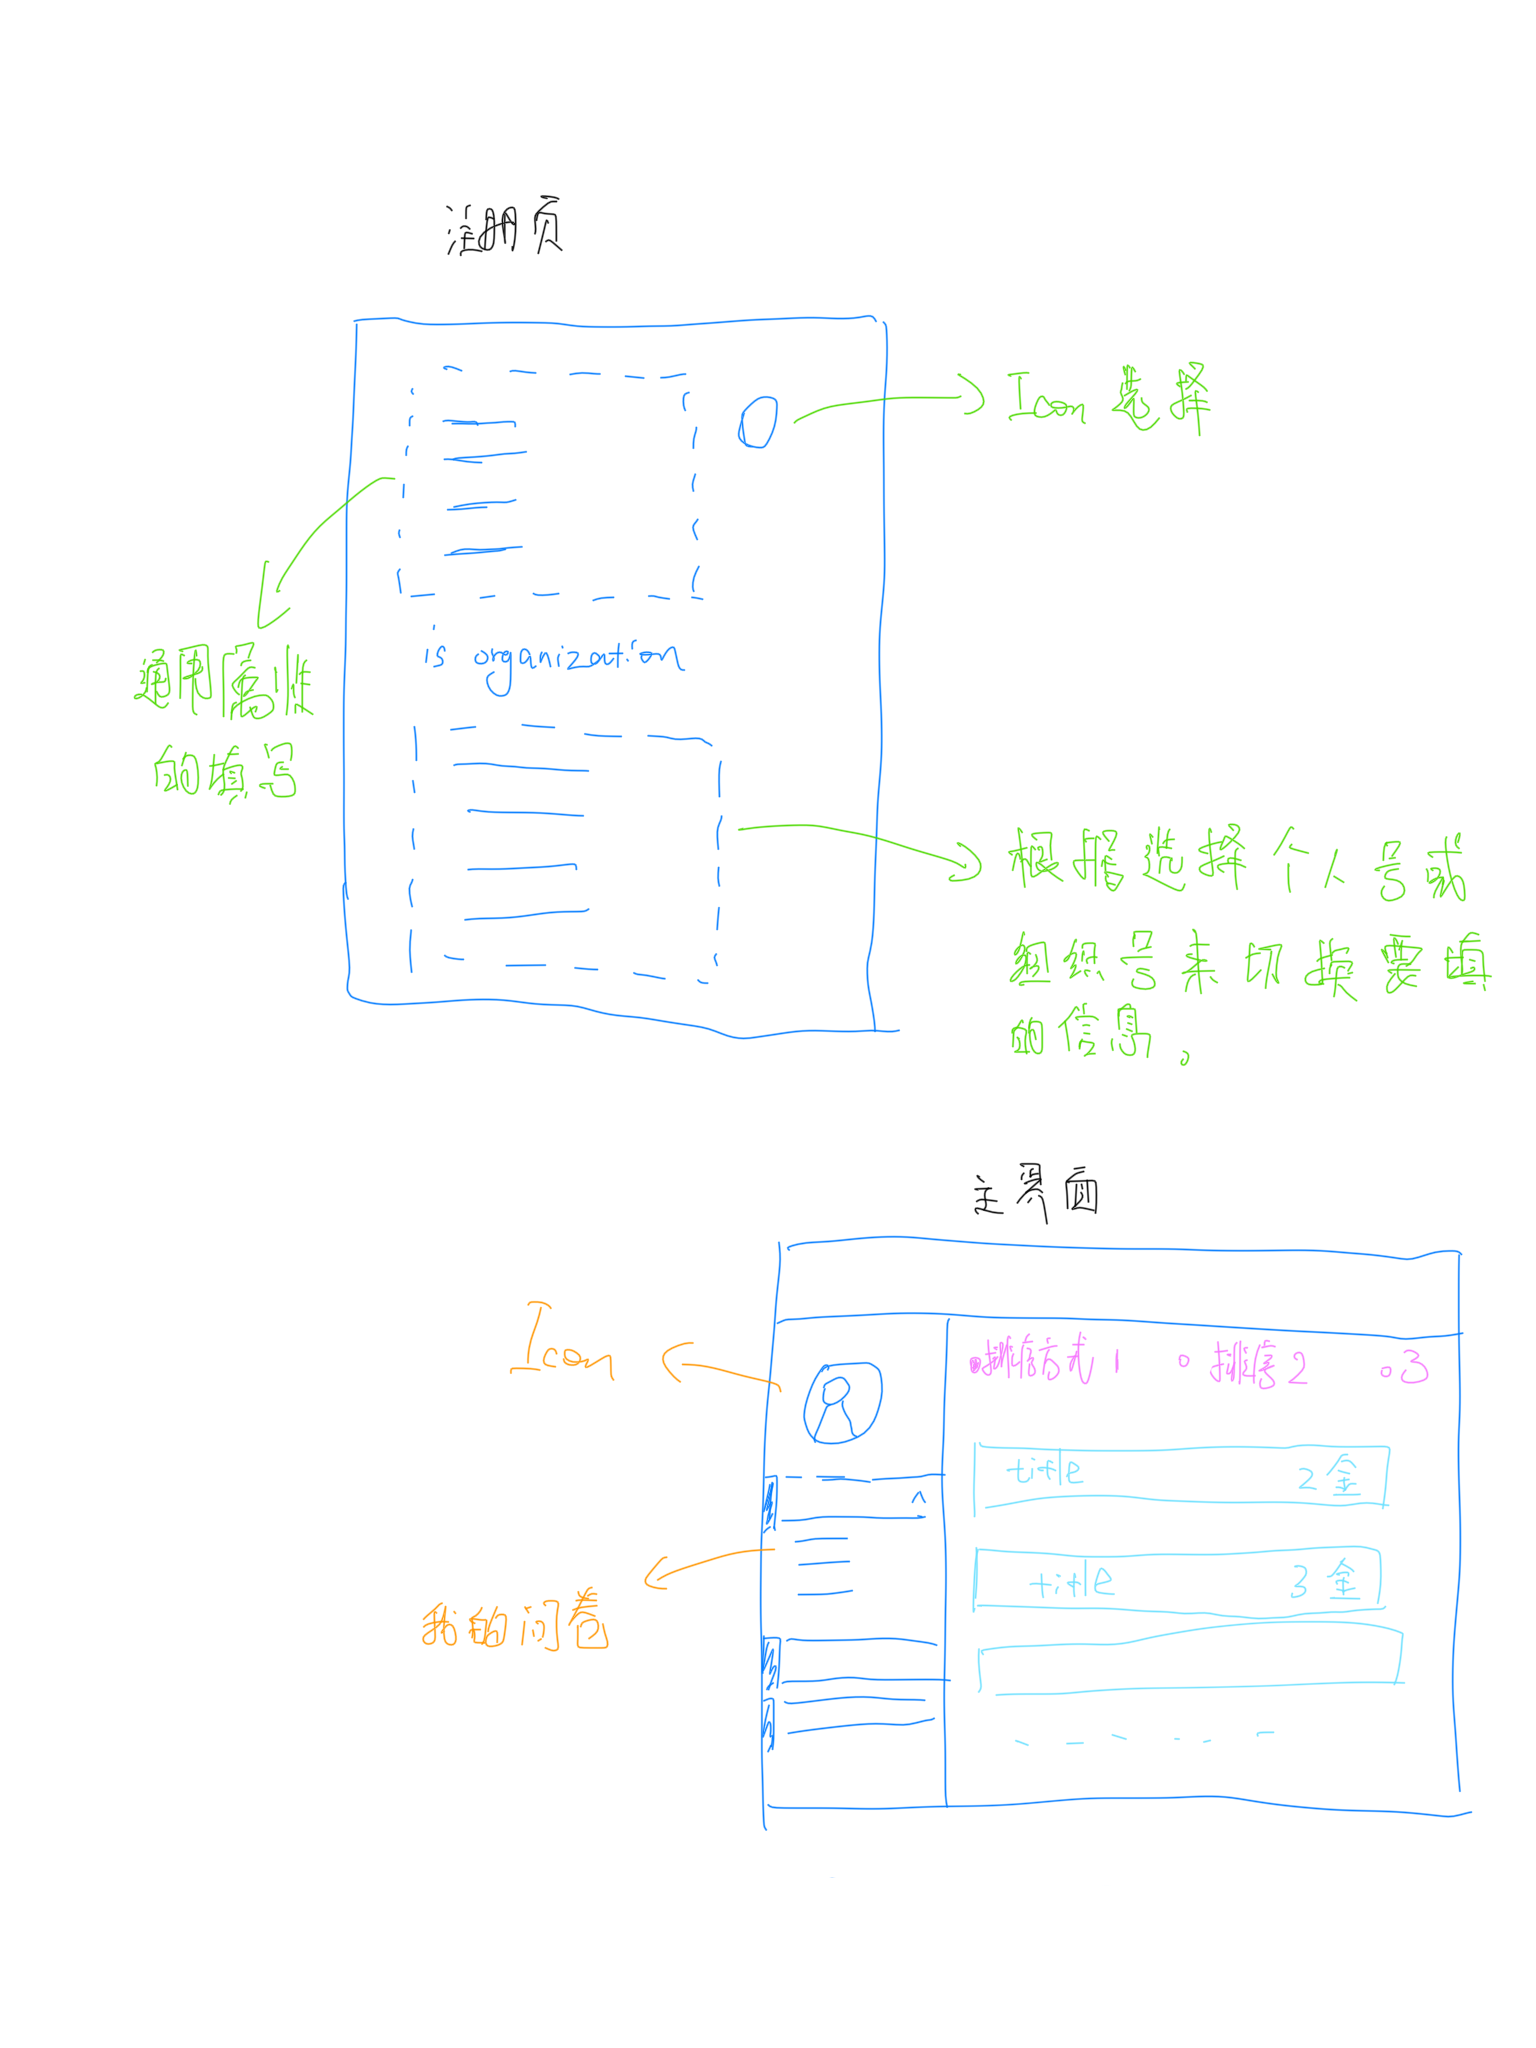 注册页
Icon 选择
is organization
通用属性
的填写
根据选择个人号或
组织号来切换要填
的信息。
主界面
Icon
排序方式1 排序2 3
title 2金
title 3金
我的问卷